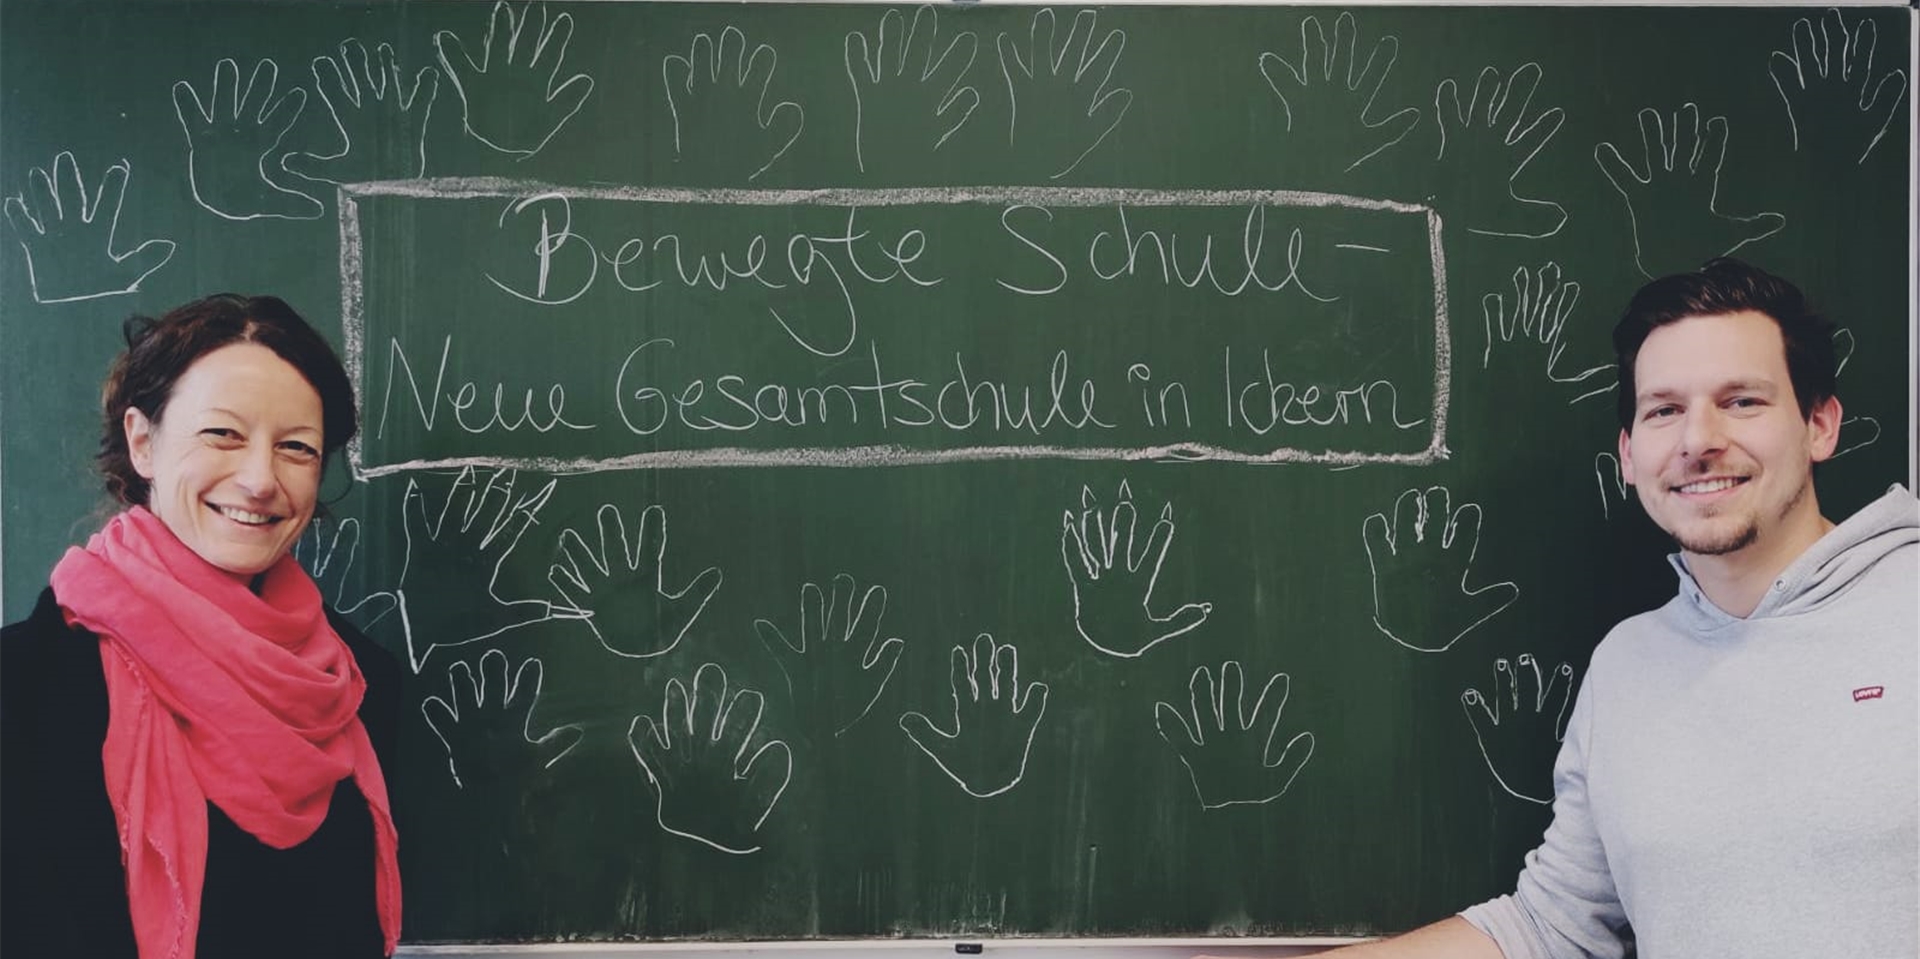 Bewegte Schule -
Neue Gesamtschule in Ickern
Levi's